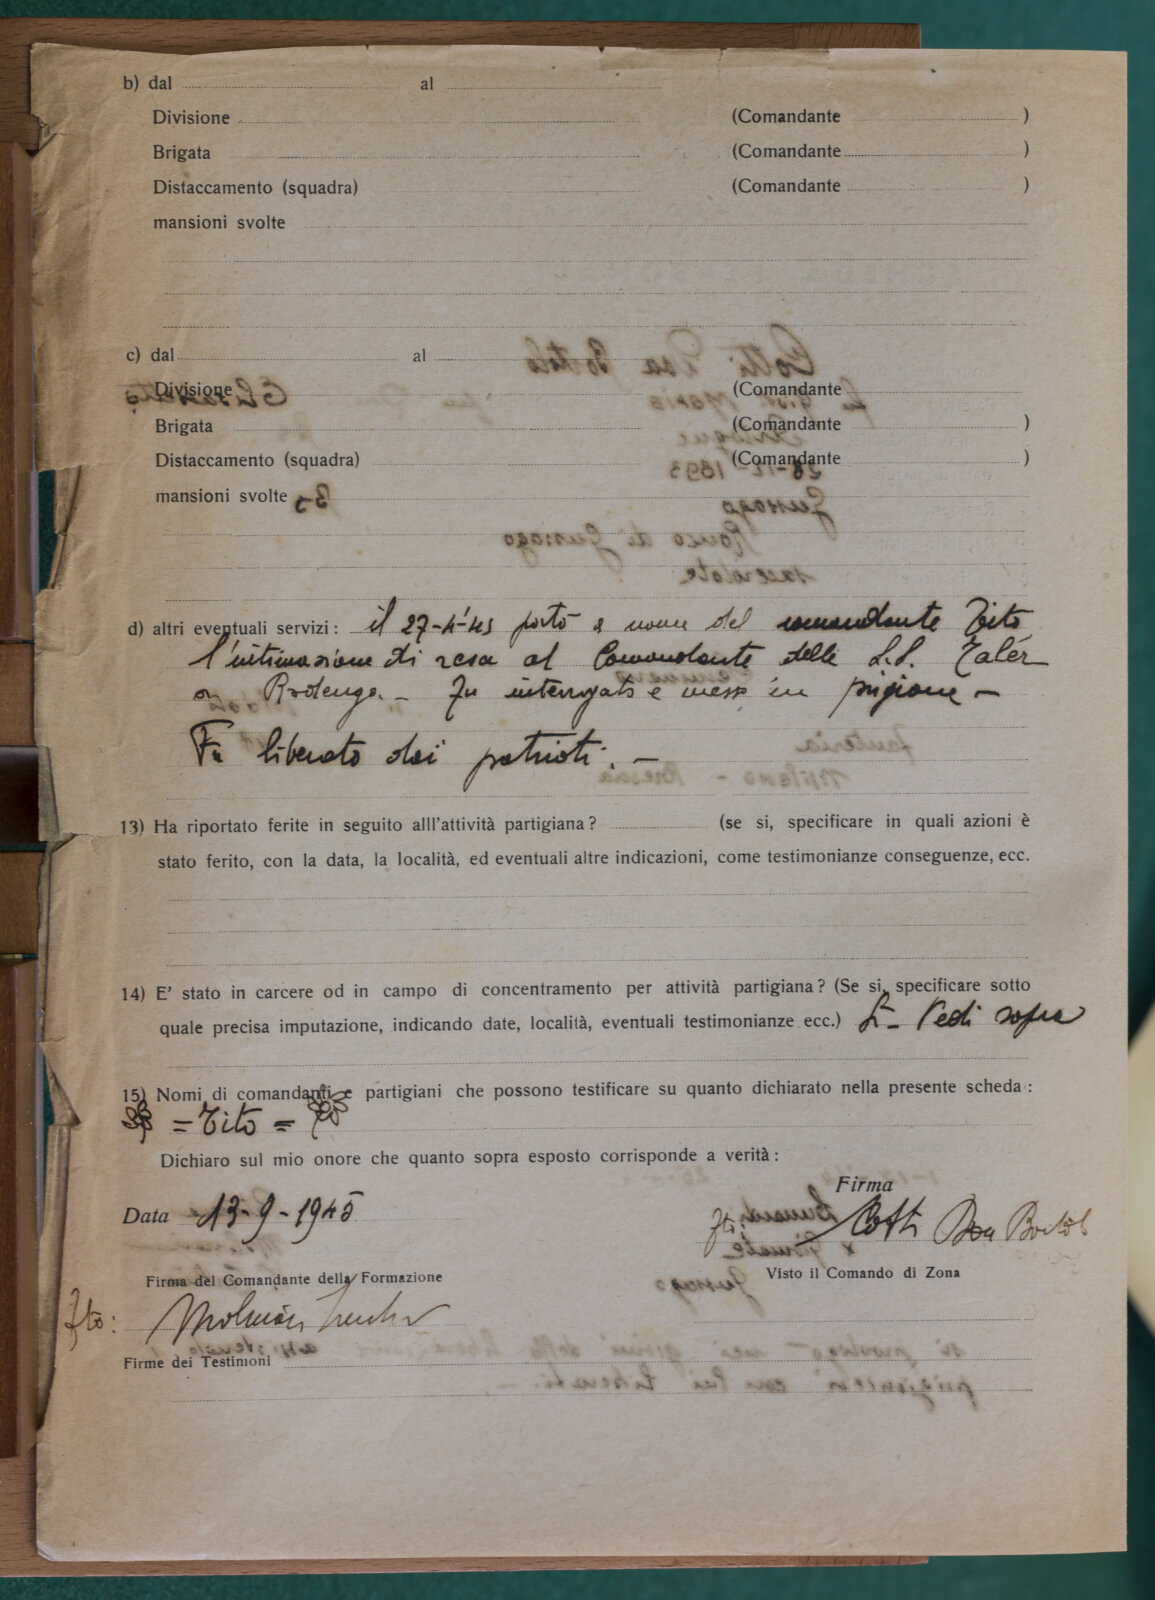 b) dal al
Divisione (Comandante )
Brigata (Comandante )
Distaccamento (squadra) (Comandante )
mansioni svolte
c) dal al
Divisione (Comandante
Brigata (Comandante )
Distaccamento (squadra) (Comandante )
mansioni svolte
d) altri eventuali servizi: il 27-4-45 portò a nome del comandante Tito
l'intimazione di resa al Comandante delle S.S. Taler
Rodengo. - Fu interrogato e messo in prigione -
Fu liberato dai patrioti. -
13) Ha riportato ferite in seguito alll'attività partigiana? (se si, specificare in quali azioni è
stato ferito, con la data, la località, ed eventuali altre indicazioni, come testimonianze conseguenze, ecc.
14) E' stato in carcere od in campo di concentramento per attività partigiana? (Se si, specificare sotto
quale precisa imputazione, indicando date, località, eventuali testimonianze ecc.) Sì - Vedi sopra
15) Nomi di comandanti e partigiani che possono testificare su quanto dichiarato nella presente scheda:
= Tito =
Dichiaro sul mio onore che quanto sopra esposto corrisponde a verità:
Firma
Data 13-9-1945 fto: Cotti Don Bortolo
Firma del Comandante della Formazione Visto il Comando di Zona
fto:
Firme dei Testimoni